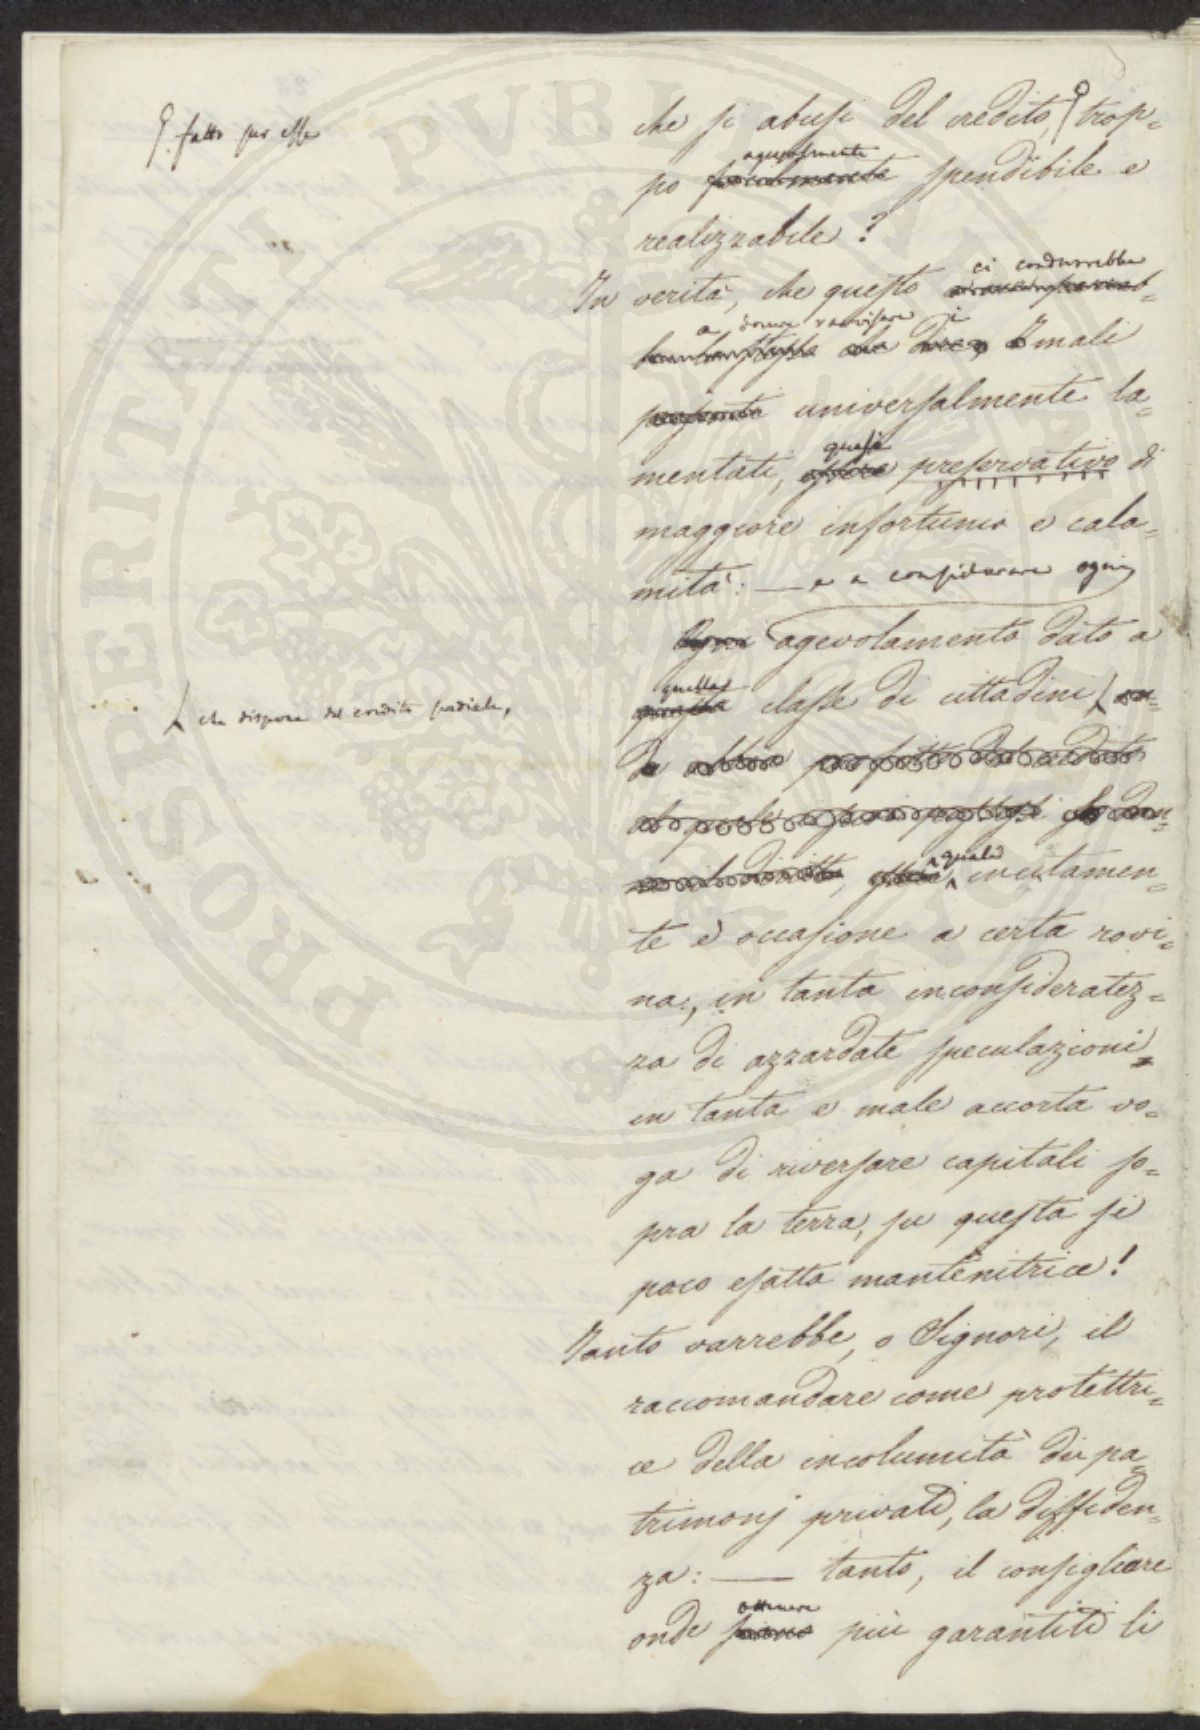 PROSPERITATI PVBLICAE
fatto per esse
che si abusi del credito, trop-
agevolmente
po facilmente spendibile e
realizzabile?
ci condurrebbe
In verità, che questo
a dover ravvisare i
mali
presenti universalmente la-
quasi
mentati, essere preservativo di
maggiore infortunio e cala-
mità: — e a considerare ogni
Ogni agevolamento dato a
quella
questa classe di cittadini on-
che dispone del credito fondiale,
de abbia
quale
incitamen-
to e occasione a certa rovi-
na, in tanta inconsideratez-
za di azzardate speculazioni,
in tanta e male accorta vo-
ga di riversare capitali so-
pra la terra, su questa sì
poco esatta mantenitrice!
Tanto varrebbe, o Signori, il
raccomandare come protettri-
ce della incolumità dei pa-
trimonj privati, la diffiden-
za: — tanto, il consigliare
ottenere
onde siano più garantiti li